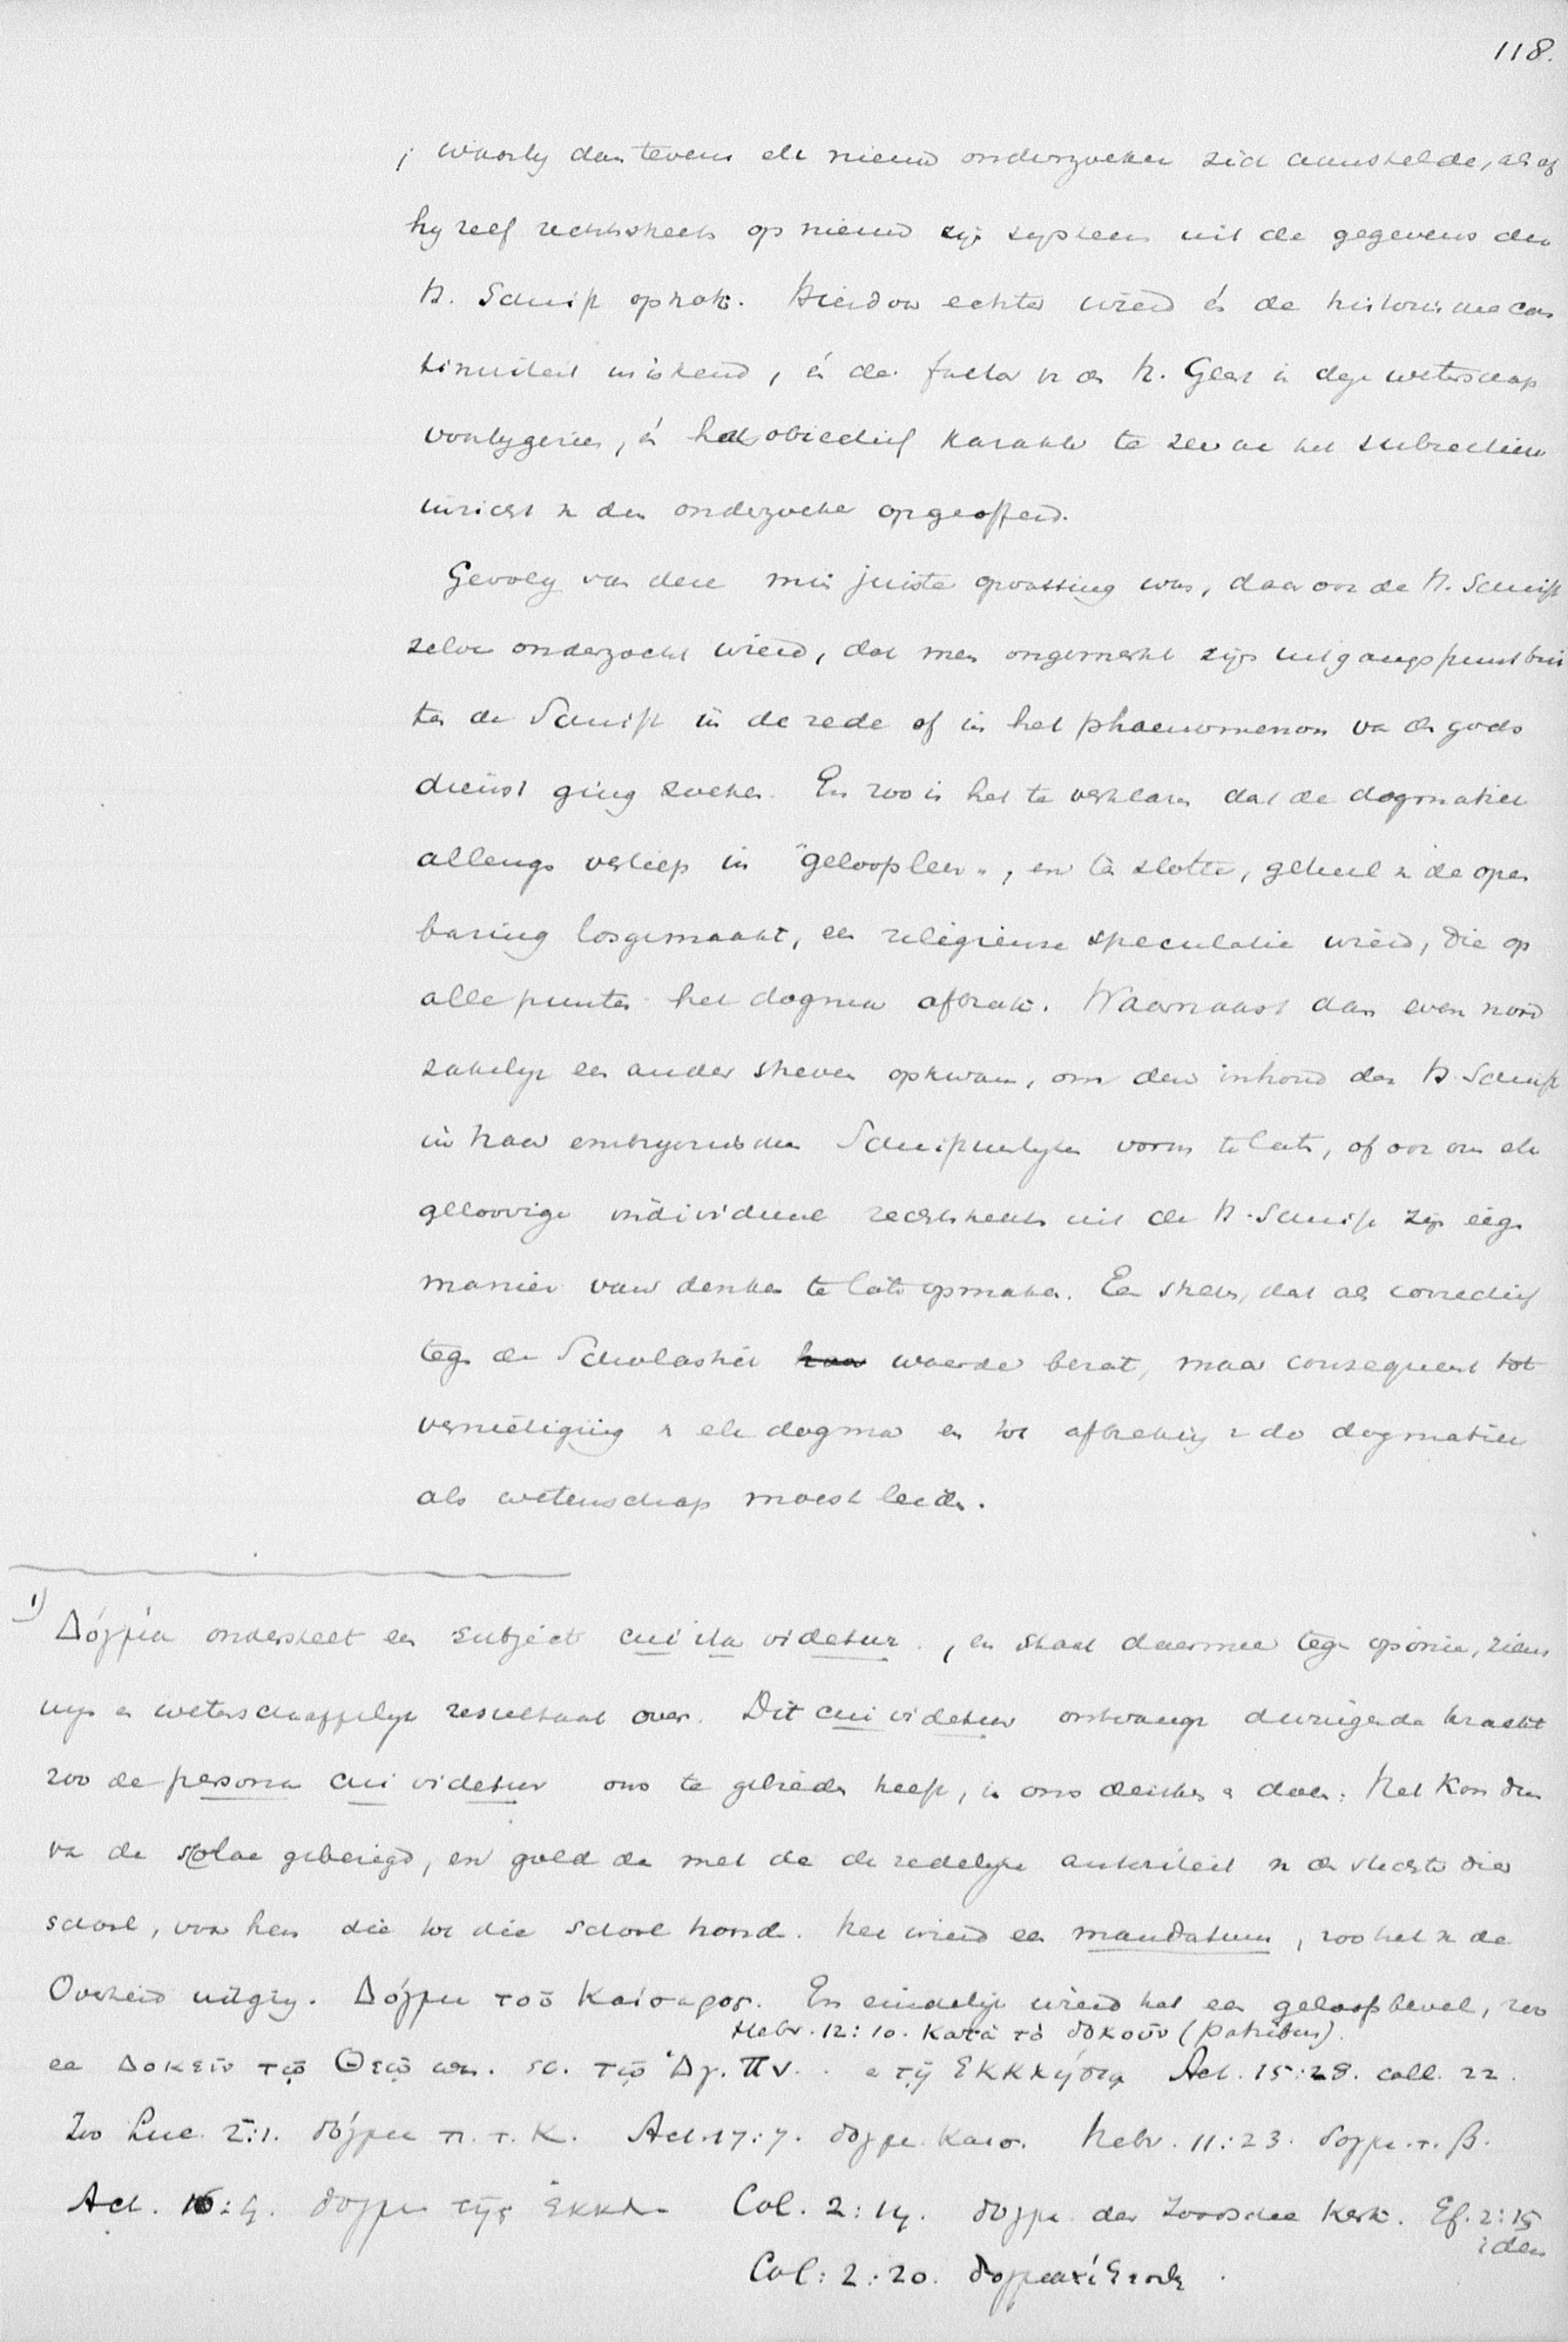 118.
; waarby dan tevens elk nieuw onderzoeker zich aanstelde, alsof
hy zelf rechtstreeks op nieuw zijn systeem uit de gegevens der
H. Schrift optrok. Hierdoor echter wierd én de historische con
tinuiteit miskend, én de factor v. d. H. Geest in deze wetenschap
voorbygezien, én het objectief karakter te zeer aan het subjectieve
inzicht v. den onderzoeker opgeofferd.
Gevolg van deze min juiste opvatting was, daar ook de H. Schrift
zelve onderzocht wierd, dat men ongemerkt zijn uitgangspunt bui
ten de Schrift in de rede of in het phaenomenon van de gods
dienst ging zoeken. En zoo is het te verklaren dat de dogmatiek
allengs verliep in "geloofsleer", en ten slotte, geheel v. de open
baring losgemaakt, een religieuse speculatie wierd, die op
alle punten het dogma afbrak. Waarnaast dan even nood
zakelijk een ander streven opkwam, om den inhoud der H. Schrift
in haar embryonischen Schriftuurlyken vorm te laten, of ook om elk
geloovige individueel rechtstreeks uit de H. Schrift zijn eigen
manier van denken te laten opmaken. Een streven, dat als correctief
tegen de Scholastiek haar waarde bezat, maar consequent tot
vernietiging v. elk dogma en tot afbreking v. de dogmatiek
als wetenschap moest leiden.
1) Δόγμα onderstelt een subject cui ita videtur, en staat daarmee tegen opinie, ziens
wijs en wetenschappelijk resultaat over. Dit cui videtur ontvangt dwingende kracht
zoo de persona cui videtur ons te gebieden heeft, in ons denken en doen. Het kon dus
van de scolae gebezigd, en gold dan met de zedelijke autoriteit v. de stichter dier
school, voor hen die tot die school hoorden. Het wierd een mandatum, zoo het v. de
Overheid uitging. Δόγμα τοῦ Καίσαρος. En eindelijk wierd het een geloofsbevel, zoo
Hebr. 12:10. Κατὰ τὸ δοκοῦν (patribus).
een Δοκεῖν τῷ Θεῷ sc. τῷ Ἁγ. Πν. en τῇ Ἐκκλησίᾳ Act. 15:28. coll. 22.
Zoo Luc. 2:1. δόγμα π. τ. Κ. Act. 17:7. δογμ. Καισ. Hebr. 11:23. δογμ. τ. β.
Act. 16:4. δογμα τῆς Ἐκκλ. Col. 2:14. δογμ. der Joodsche Kerk. Ef. 2:15
idem
Col: 2:20. δογματίζεσθε.